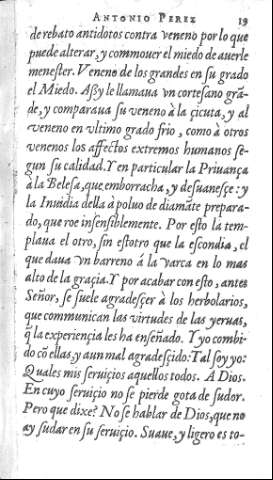 ANTONIO PEREZ 19
de rebato antidotos contra veneno por lo que
puede alterar, y commouer el miedo de auerle
menester. Veneno de los grandes en su grado
el Miedo. Aßy le llamaua vn cortesano grã-
de, y comparaua su veneno à la çicuta, y al
veneno en vltimo grado frio, como à otros
venenos los affectos extremos humanos se-
gun su calidad. Y en particular la Priuança
à la Belesa, que emborracha, y desuanesçe: y
la Inuidia della à poluo de diamãte prepara-
do, que roe insensiblemente. Por esto la tem-
plaua el otro, sin estotro que la escondia, el
que daua vn barreno à la varca en lo mas
alto de la graçia. Y por acabar con esto, antes
Señor, se suele agradesçer à los herbolarios,
que communican las virtudes de las yeruas,
q̃ la experiençia les ha enseñado. Y yo combi-
do cõ ellas, y aun mal agradesçido: Tal soy yo:
Quales mis seruiçios aquellos todos. A Dios.
En cuyo seruiçio no se pierde gota de sudor.
Pero que dixe? No se hablar de Dios, que no
ay sudar en su seruiçio. Suaue, y ligero es to-